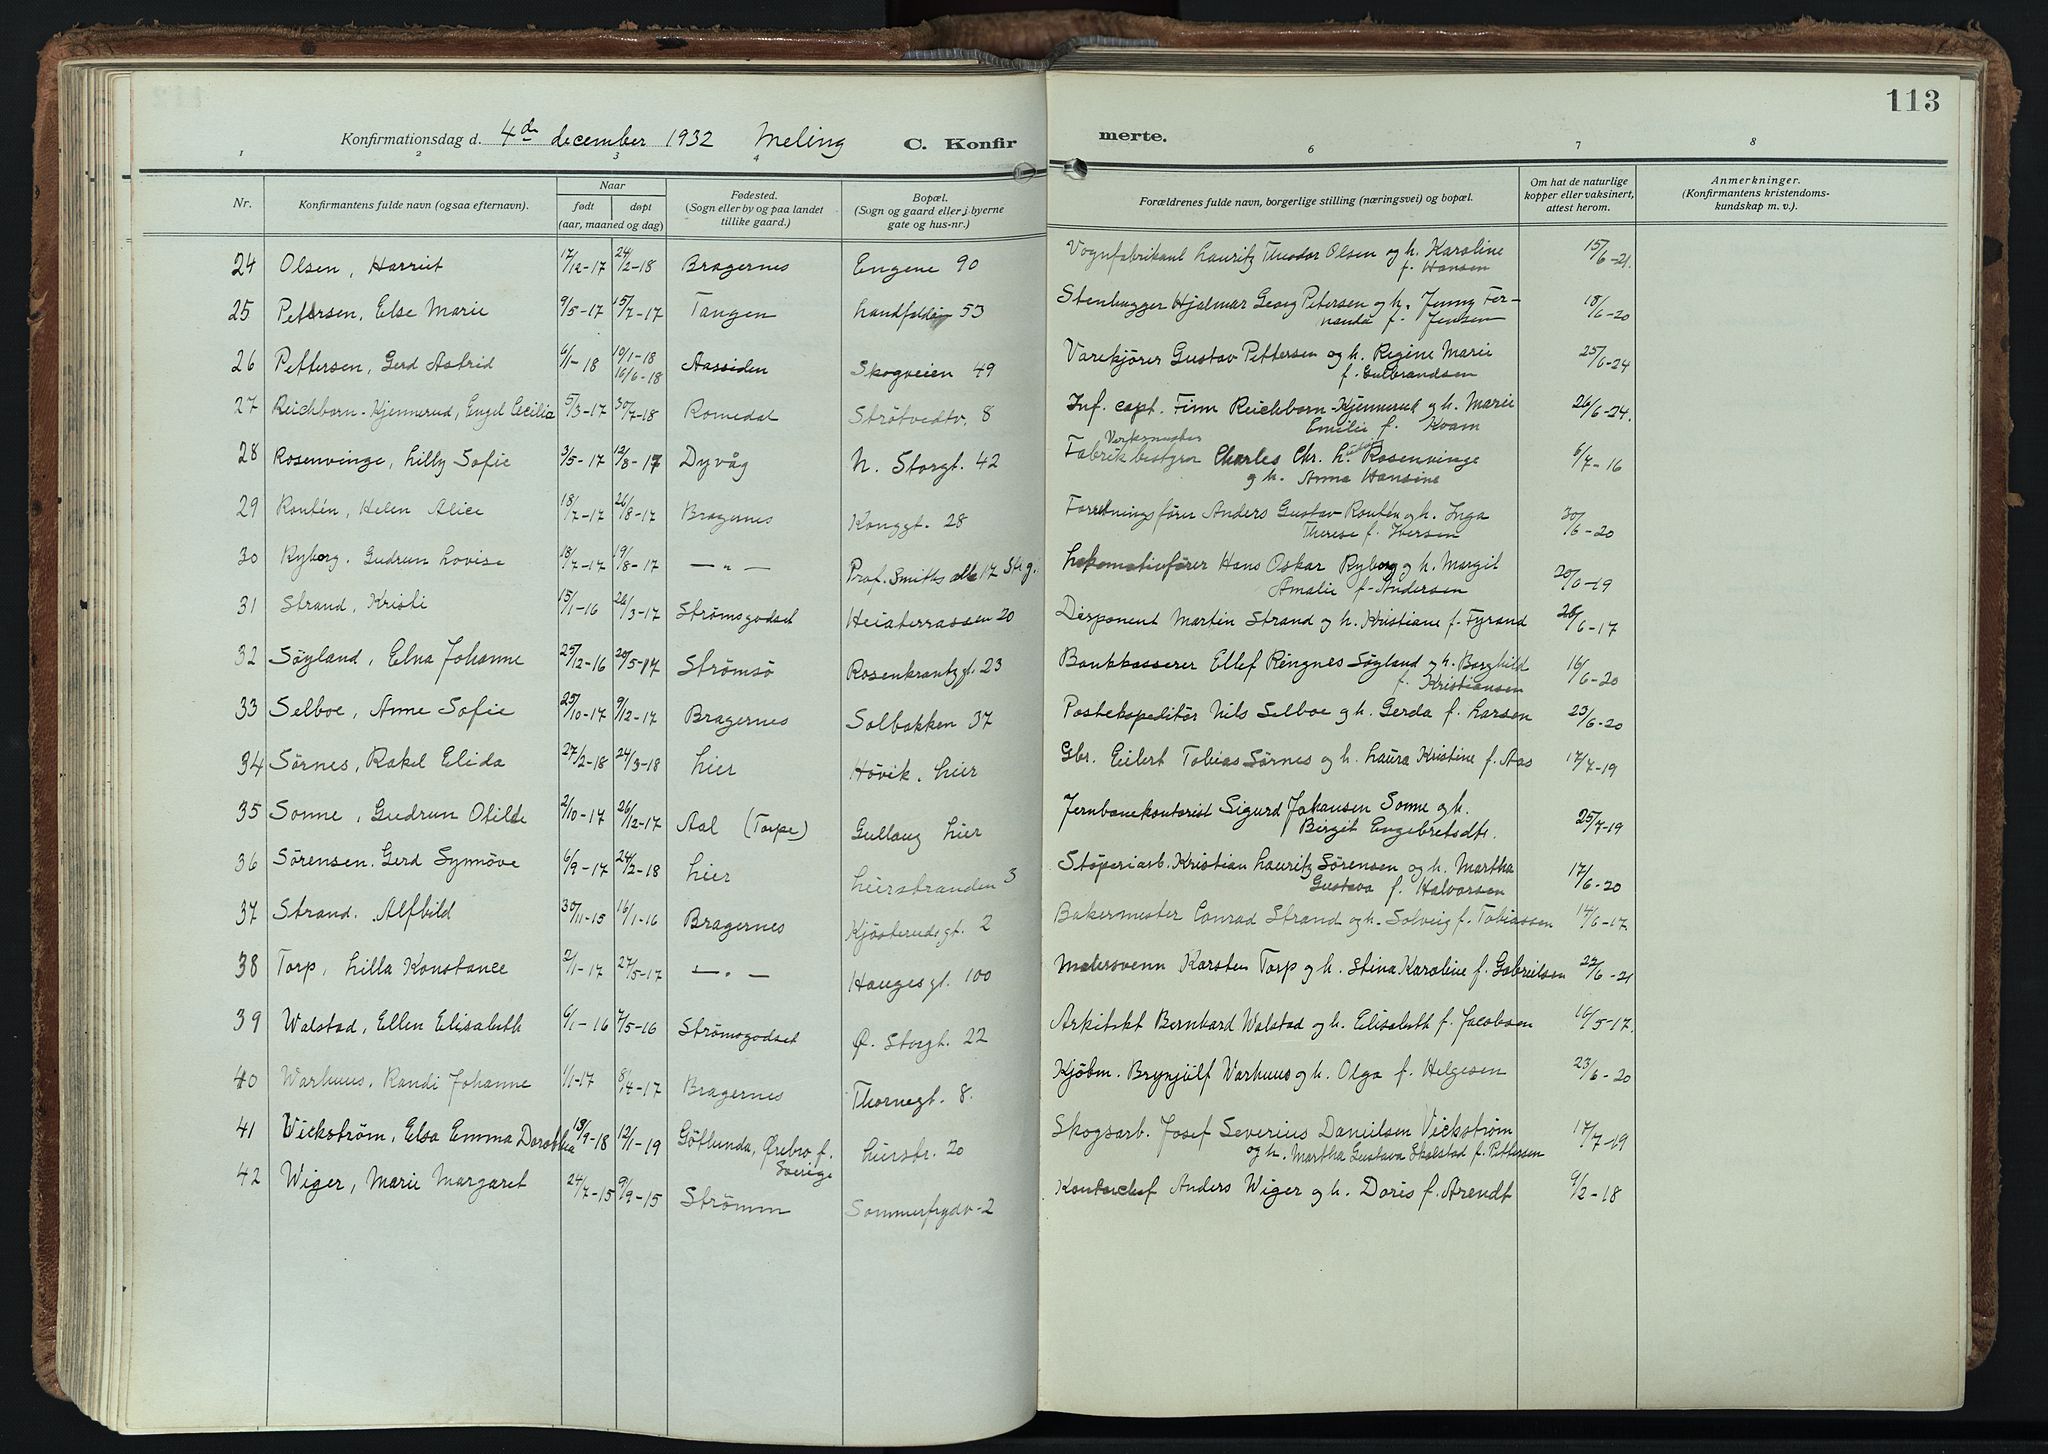 113
Konfirmationsdag d. 4de december 1932 Meling C. Konfir merte.
1 2 3 4 6 7 8
Nr. Konfirmantens fulde navn (ogsaa efternavn). Naar født døpt (aar, maaned og dag) Fødested. (Sogn eller by og paa landet tillike gaard.) Bopæl. (Sogn og gaard eller i byerne gate og hus-nr.) Forældrenes fulde navn, borgerlige stilling (næringsvei) og bopæl. Om hat de naturlige kopper eller vaksinert, attest herom. Anmerkninger. (Konfirmantens kristendoms- kundskap m. v.).
24 Olsen, Harriet 17/12-17 24/2-18 Bragernes Engene 90 Vognfabrikant Lauritz Theodor Olsen og h. Karoline 15/6-21.
f. Hansen
25 Petersen, Else Marie 9/5-17 15/7-17 Tangen Landfalden 53 Stenhugger Hjalmar Georg Petersen og h. Jenny Fer- 18/6-20
nanda f. Jensen
26 Pettersen, Gerd Astrid 6/1-18 10/1-18 16/6-18 Aassiden Skogveien 49 Varekjører Gustav Pettersen og h. Regine Marie 25/6-24
f. Gulbrandsen
27 Reichborn-Kjennerud, Engel Cecilia 5/3-17 30/7-18 Romedal Strøtvedtv. 8 Inf. capt. Finn Reichborn-Kjennerud og h. Marie 26/6-24.
Emilie f. Kvam
Verksmester
28 Rosenvinge, Lilly Sofie 3/5-17 12/8-17 Dyvåg N. Storgt. 42 Fabrikbestyrer Charles Chr. Rosenvinge 6/7-16
og h. Anna Hansine
29 Routén, Helen Alice 18/7-17 26/8-17 Bragernes Konggt. 28 Forretningsfører Anders Gustav Routén og h. Inga 30/6-20
Therese f. Iversen
30 Ryberg, Gudrun Lovise 18/7-17 19/8-17 — " — Prof. Smiths alle 17 Stg. Lokomotivfører Hans Oskar Ryberg og h. Margit
Amalie f. Andersen
31 Strand, Kristi 15/1-16 26/3-17 Strømsgodset Heiaterrassen 20 Disponent Martin Strand og h. Kristiane f. Fyrand 26/6-17
32 Søyland, Elna Johanne 25/12-16 20/5-17 Strømsø Rosenkrantzgt. 23 Bankkasserer Ellef Ringnes Søyland og h. Borghild 16/6-20
f. Kristiansen
33 Selboe, Anne Sofie 25/10-17 9/12-17 Bragernes Solbakken 37 Postekspeditør Nils Selboe og h. Gerda f. Larsen 23/6-20
34 Sørnes, Rakel Elida 27/2-18 24/3-18 Lier Høvik, Lier Gbr. Eilert Tobias Sørnes og h. Laura Kristine f. Aas 17/7-19
35 Sonne, Gudrun Otilde 2/10-17 26/12-17 Aal (Torpe) Gullaug Lier Jernbanekontorist Sigurd Johansen Sonne og h.
Birgit Engebretsdt. 25/7-19
36 Sørensen, Gerd Synnøve 6/9-17 24/2-18 Lier Lierstranden 3 Støperiarb. Kristian Lauritz Sørensen og h. Martha 17/6-20
Gustava f. Halvorsen
37 Strand, Alfhild 30/11-15 16/1-16 Bragernes Kjøsterudsgt. 2 Bakermester Conrad Strand og h. Solveig f. Tobiassen 14/6-17.
38 Torp, Lilla Konstance 2/1-17 27/5-17 — " — Haugesgt. 100 Malersvenn Karsten Torp og h. Stina Karoline f. Gabrielsen 22/6-21
39 Walstad, Ellen Elisabeth 6/1-16 7/5-16 Strømsgodset Ø. Storgt. 22 Arkitekt Bernhard Walstad og h. Elisabeth f. Jacobsen 16/5-17.
40 Warhuus, Randi Johanne 1/1-17 8/4-17 Bragernes Thornegt. 8. Kjøbm. Brynjulf Warhuus og h. Olga f. Helgesen 23/6-20
41 Vickstrøm, Elsa Emma Dorothea 13/9-18 12/1-19 Götlunda, Ørebro f. Lierstr. 20 Skogsarb. Josef Severius Danielsen Vickstrøm 17/7-19
Sverige og h. Martha Gustava Skalstad f. Pettersen
42 Wiger, Marie Margaret 24/7-15 9/9-15 Strømm Sommerfrydv-2 Kontorchef Anders Wiger og h. Doris f. Arendt 9/2-18